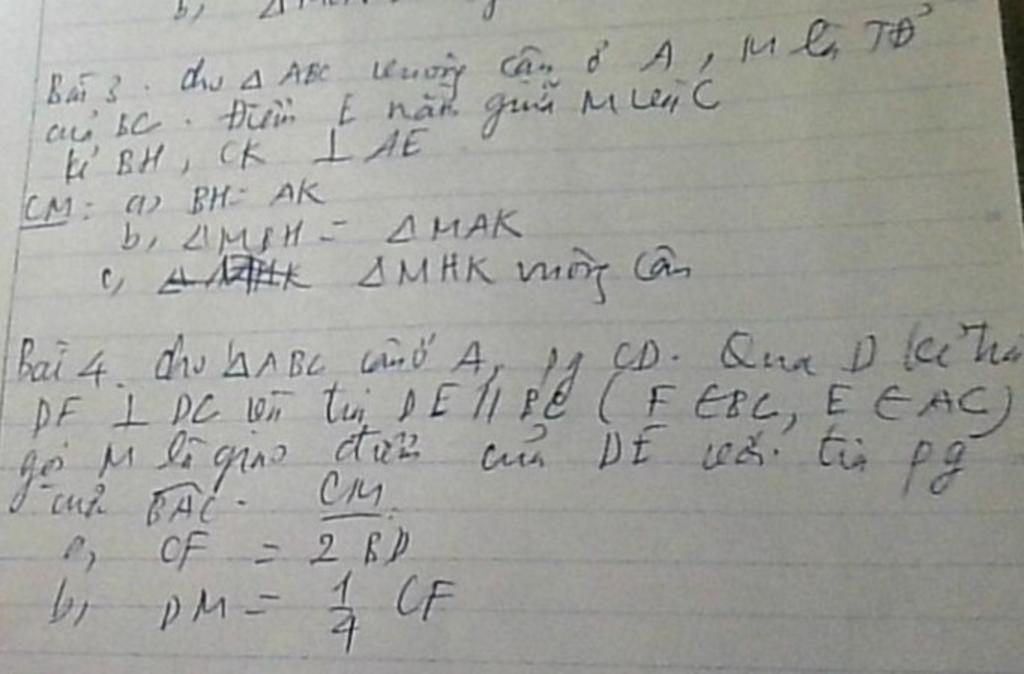 b,
Bài 3. cho Δ ABC vuông cân ở A, M là TĐ
của BC. Điểm E nằm giữa M và C
kẻ BH, CK ⊥ AE
CM: a) BH = AK
b, ΔMBH = ΔMAK
c, ΔMHK vuông cân
Bài 4. cho ΔABC cân ở A, pg CD. Qua D kẻ tia
DF ⊥ DC và tia DE // BC (F ∈ BC, E ∈ AC)
gọi M là giao điểm của DE với tia pg
của BAC. CM:
a, CF = 2 BD
b, DM = 1/4 CF